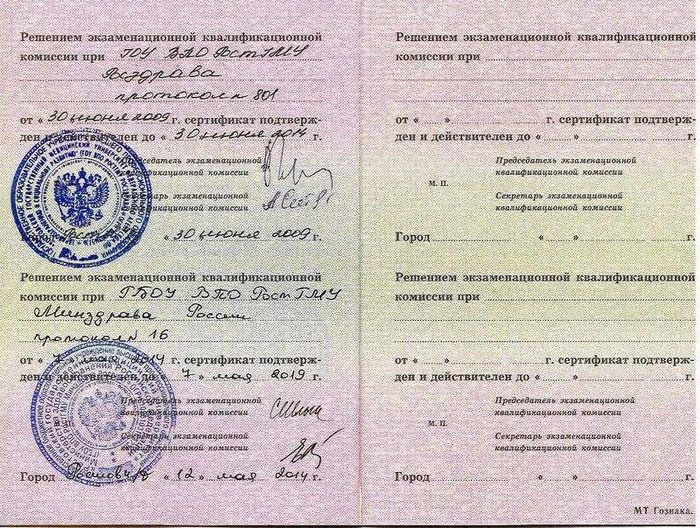 Решением экзаменационной квалификационной
комиссии при ГОУ ВПО РостГМУ
Росздрава
протокол № 801
от « 30 июня 2009 г. сертификат подтверж-
ден и действителен до « 30 июня 2014 г.
Председатель экзаменационной
квалификационной комиссии
Секретарь экзаменационной
квалификационной комиссии
« 30 июня 2009 г.
Решением экзаменационной квалификационной
комиссии при ГБОУ ВПО РостГМУ
Минздрава России
протокол 16
от « 7 » мая 2014 г. сертификат подтверж-
ден и действителен до « 7 » мая 2019 г.
Председатель экзаменационной
квалификационной комиссии
Секретарь экзаменационной
квалификационной комиссии
Город « 12 » мая 2014 г.
Решением экзаменационной квалификационной
комиссии при
от « » г. сертификат подтверж-
ден и действителен до « » г.
Председатель экзаменационной
квалификационной комиссии
М. П.
Секретарь экзаменационной
квалификационной комиссии
Город « » г.
Решением экзаменационной квалификационной
комиссии при
от « » г. сертификат подтверж-
ден и действителен до « » г.
Председатель экзаменационной
квалификационной комиссии
М. П.
Секретарь экзаменационной
квалификационной комиссии
Город « » г.
МТ Гознака.